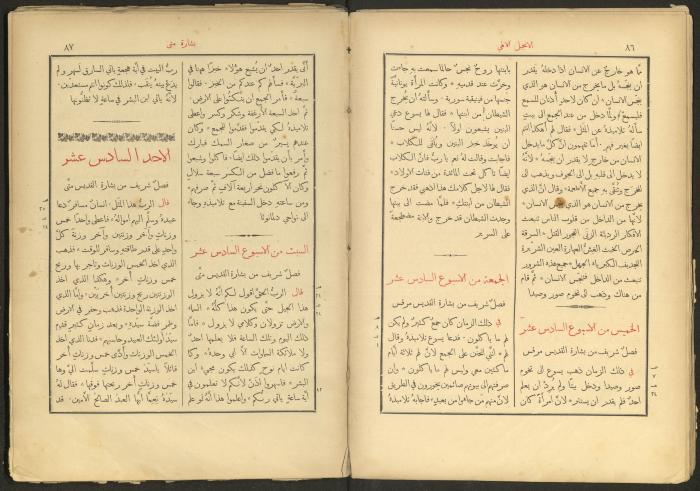 ٨٦
الانجيل الالهي
مّا هو خارج عن الانسان اذا دخله يقدر
ان ينجّسه بل ما يخرج من الانسان هو الذي
ينجّس الانسان ان كان لاحدٍ اُذنان للسمع
فليسمع ولمّا دخل من عند الجمع الى بيتٍ
سأله تلاميذه عن المثل فقال لهم أهكذا انتم
ايضاً بغير فهم أما تفهمون انّ كلّ ما يدخل
الانسان من خارج لا يقدر ان ينجّسه لانّه
لا يدخل الى قلبه بل الى الجوف ويذهب الى
المخرج ويُنقّى به جميع الاطعمة وقال انّ الذي
يخرج من الانسان هو الذي ينجّس الانسان
لانّها من الداخل من قلوب الناس تنبعث
الافكار الرديئة الزنى الفجور القتل السرقة
الحرص الخبث الغشّ العهارة العين الشرّيرة
التجديف الكبرياء الجهل جميع هذه الشرور
تنبعث من الداخل فتنجّس الانسان ثم قام
من هناك وذهب الى تخوم صور وصيدا
الخميس من الاسبوع السادس عشر
فصل شريف من بشارة القديس مرقس
في ذلك الزمان ذهب يسوع الى تخوم
صور وصيدا ودخل بيتاً ولم يُرد ان يعلم
احدٌ فلم يقدر ان يستتر لانّ امرأةً كان
بابنتها روحٌ نجسٌ حالما سمعت به جاءت
وخرّت عند قدميه وكانت المرأة يونانيّةً
جنسها من فينيقية سورية وسألته ان يُخرج
الشيطان من ابنتها فقال لها يسوع دعي
البنين يشبعون اولاً لانّه ليس حسناً
ان يُؤخذ خبز البنين ويُلقى للكلاب
فاجابت وقالت له نعم يا ربّ فانّ الكلاب
ايضاً تأكل تحت المائدة من فتات الاولاد
فقال لها لاجل كلامك هذا اذهبي فقد خرج
الشيطان من ابنتك فلمّا مضت الى بيتها
وجدت الشيطان قد خرج والابنة مضطجعةً
على السرير
الجمعة من الاسبوع السادس عشر
فصل شريف من بشارة القديس مرقس
في ذلك الزمان كان جمعٌ كثيرٌ ولم يكن
لهم ما ياكلون فدعا يسوع تلاميذه وقال
لهم انّي اتحنّن على الجمع لانّ لهم ثلاثة ايامٍ
ماكثين معي وليس لهم ما ياكلون وإن
صرفتهم الى بيوتهم صائمين يخورون في الطريق
لانّ منهم مَن جاءوا من بعيد فاجابه تلاميذهُ
بشارة متى
٨٧
أنّى يقدر احدٌ ان يُشبع هؤلاء خبزاً ههنا في
البريّة فسألهم كم عندكم من الخبز فقالوا
سبعة فأمر الجمع ان يتّكئوا على الارض
ثمّ اخذ السبعة الارغفة وشكر وكسر واعطى
تلاميذه لكي يقدّموا فقدّموا للجمع وكان
عندهم يسيرٌ من صغار السمك فبارك
وامر بأن يقدّموا ذلك ايضاً فأكلوا وشبعوا
ثمّ رفعوا ما فضل من الكسر سبعة سلال
وكان الآكلون نحو اربعة آلاف ثمّ صرفهم
ومن ساعته دخل السفينة مع تلاميذه وجاء
الى نواحي دلمانوثا
السبت من الاسبوع السادس عشر
فصل شريف من بشارة القديس متى
قال الربّ الحقّ اقول لكم انّه لا يزول
هذا الجيل حتّى يكون هذا كلّه السماء
والارض تزولان وكلامي لا يزول فامّا
ذلك اليوم وتلك الساعة فلا يعلمها احدٌ
ولا ملائكة السماوات الّا ابي وحده وكما
كانت ايام نوح كذلك يكون مجيء ابن
البشر فاسهروا اذن لانّكم لا تعلمون في
اية ساعةٍ ياتي ربّكم واعلموا هذا انّه لو علم
ربّ البيت في أية هجعةٍ ياتي السارق لسهر ولم
يدع بيته يُنقب فلذلك كونوا انتم مستعدين
لانّه ياتي ابن البشر في ساعةٍ لا تظنّونها
الاحد السادس عشر
فصل شريف من بشارة القديس متى
قال الربّ هذا المثل انسانٌ مسافرٌ دعا
عبيده وسلّم اليهم امواله فاعطى واحداً خمس
وزناتٍ وآخر وزنتين وآخر وزنةً كلّ
واحدٍ على قدر طاقته وسافر للوقت فذهب
الذي اخذ الخمس الوزنات وتاجر بها وربح
خمس وزناتٍ اُخَر وهكذا الذي اخذ
الوزنتين ربح وزنتين أُخريين وامّا الذي
اخذ الوزنة الواحدة فذهب وحفر في الارض
وطمر فضّة سيّده وبعد زمانٍ كثيرٍ قدم
سيّد اولئك العبيد وحاسبهم فدنا الذي اخذ
الخمس الوزنات وأدّى خمس وزناتٍ اُخَر
قائلاً يا سيّد خمس وزناتٍ سلّمت اليّ وها
خمس وزناتٍ اُخَر ربحتها فوقها فقال له
سيّده نعمّا ايّها العبد الصالح الامين قد